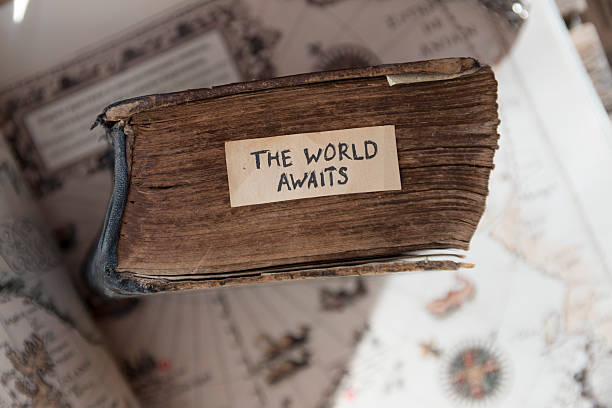 THE WORLD
AWAITS